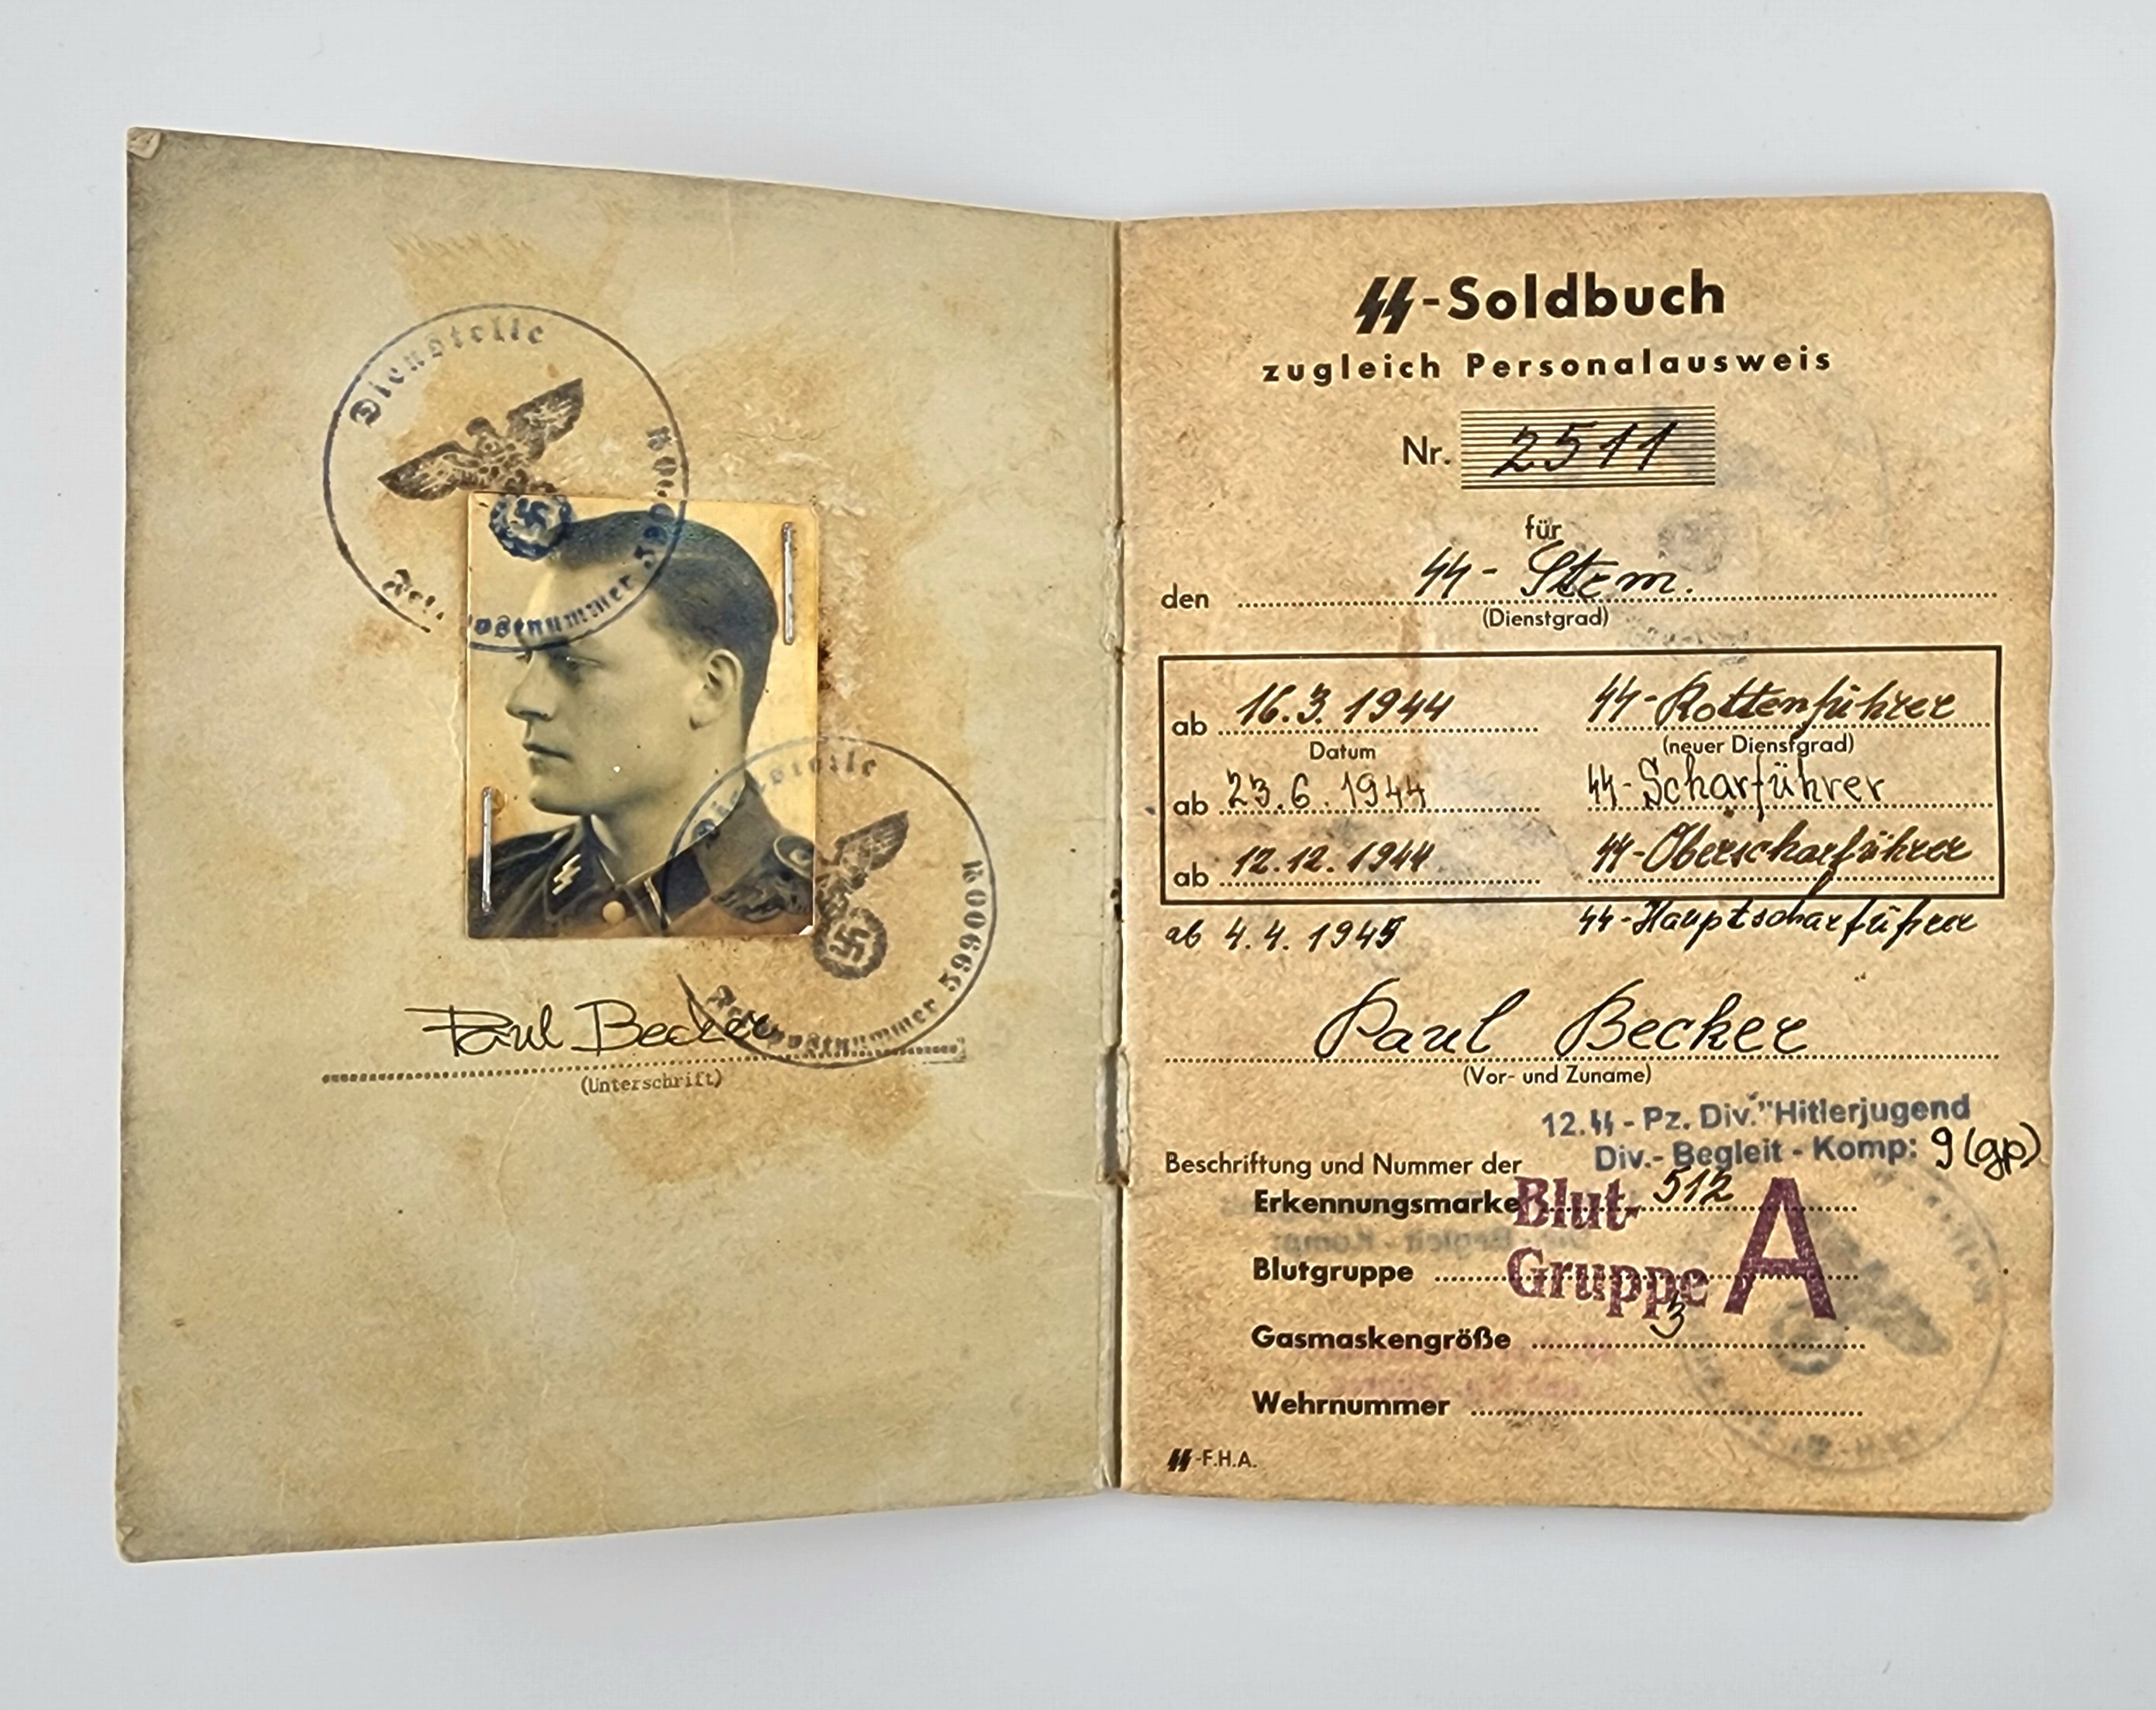 Dienstelle
Feldpostnummer 59900A
Dienstelle
Feldpostnummer 59900A
Paul Becker
(Unterschrift)
SS-Soldbuch
zugleich Personalausweis
Nr. 2511
für
den SS-Stzm.
(Dienstgrad)
ab 16.3.1944 SS-Rottenführer
Datum (neuer Dienstgrad)
ab 23.6.1944 SS-Scharführer
ab 12.12.1944 SS-Oberscharführer
ab 4.4.1945 SS-Hauptscharführer
Paul Becker
(Vor- und Zuname)
12.SS-Pz. Div."Hitlerjugend
Div.-Begleit-Komp: 9(gp)
Beschriftung und Nummer der
Erkennungsmarke 512
Blut-
Blutgruppe Gruppe A
Gasmaskengröße 3
Wehrnummer
SS-F.H.A.